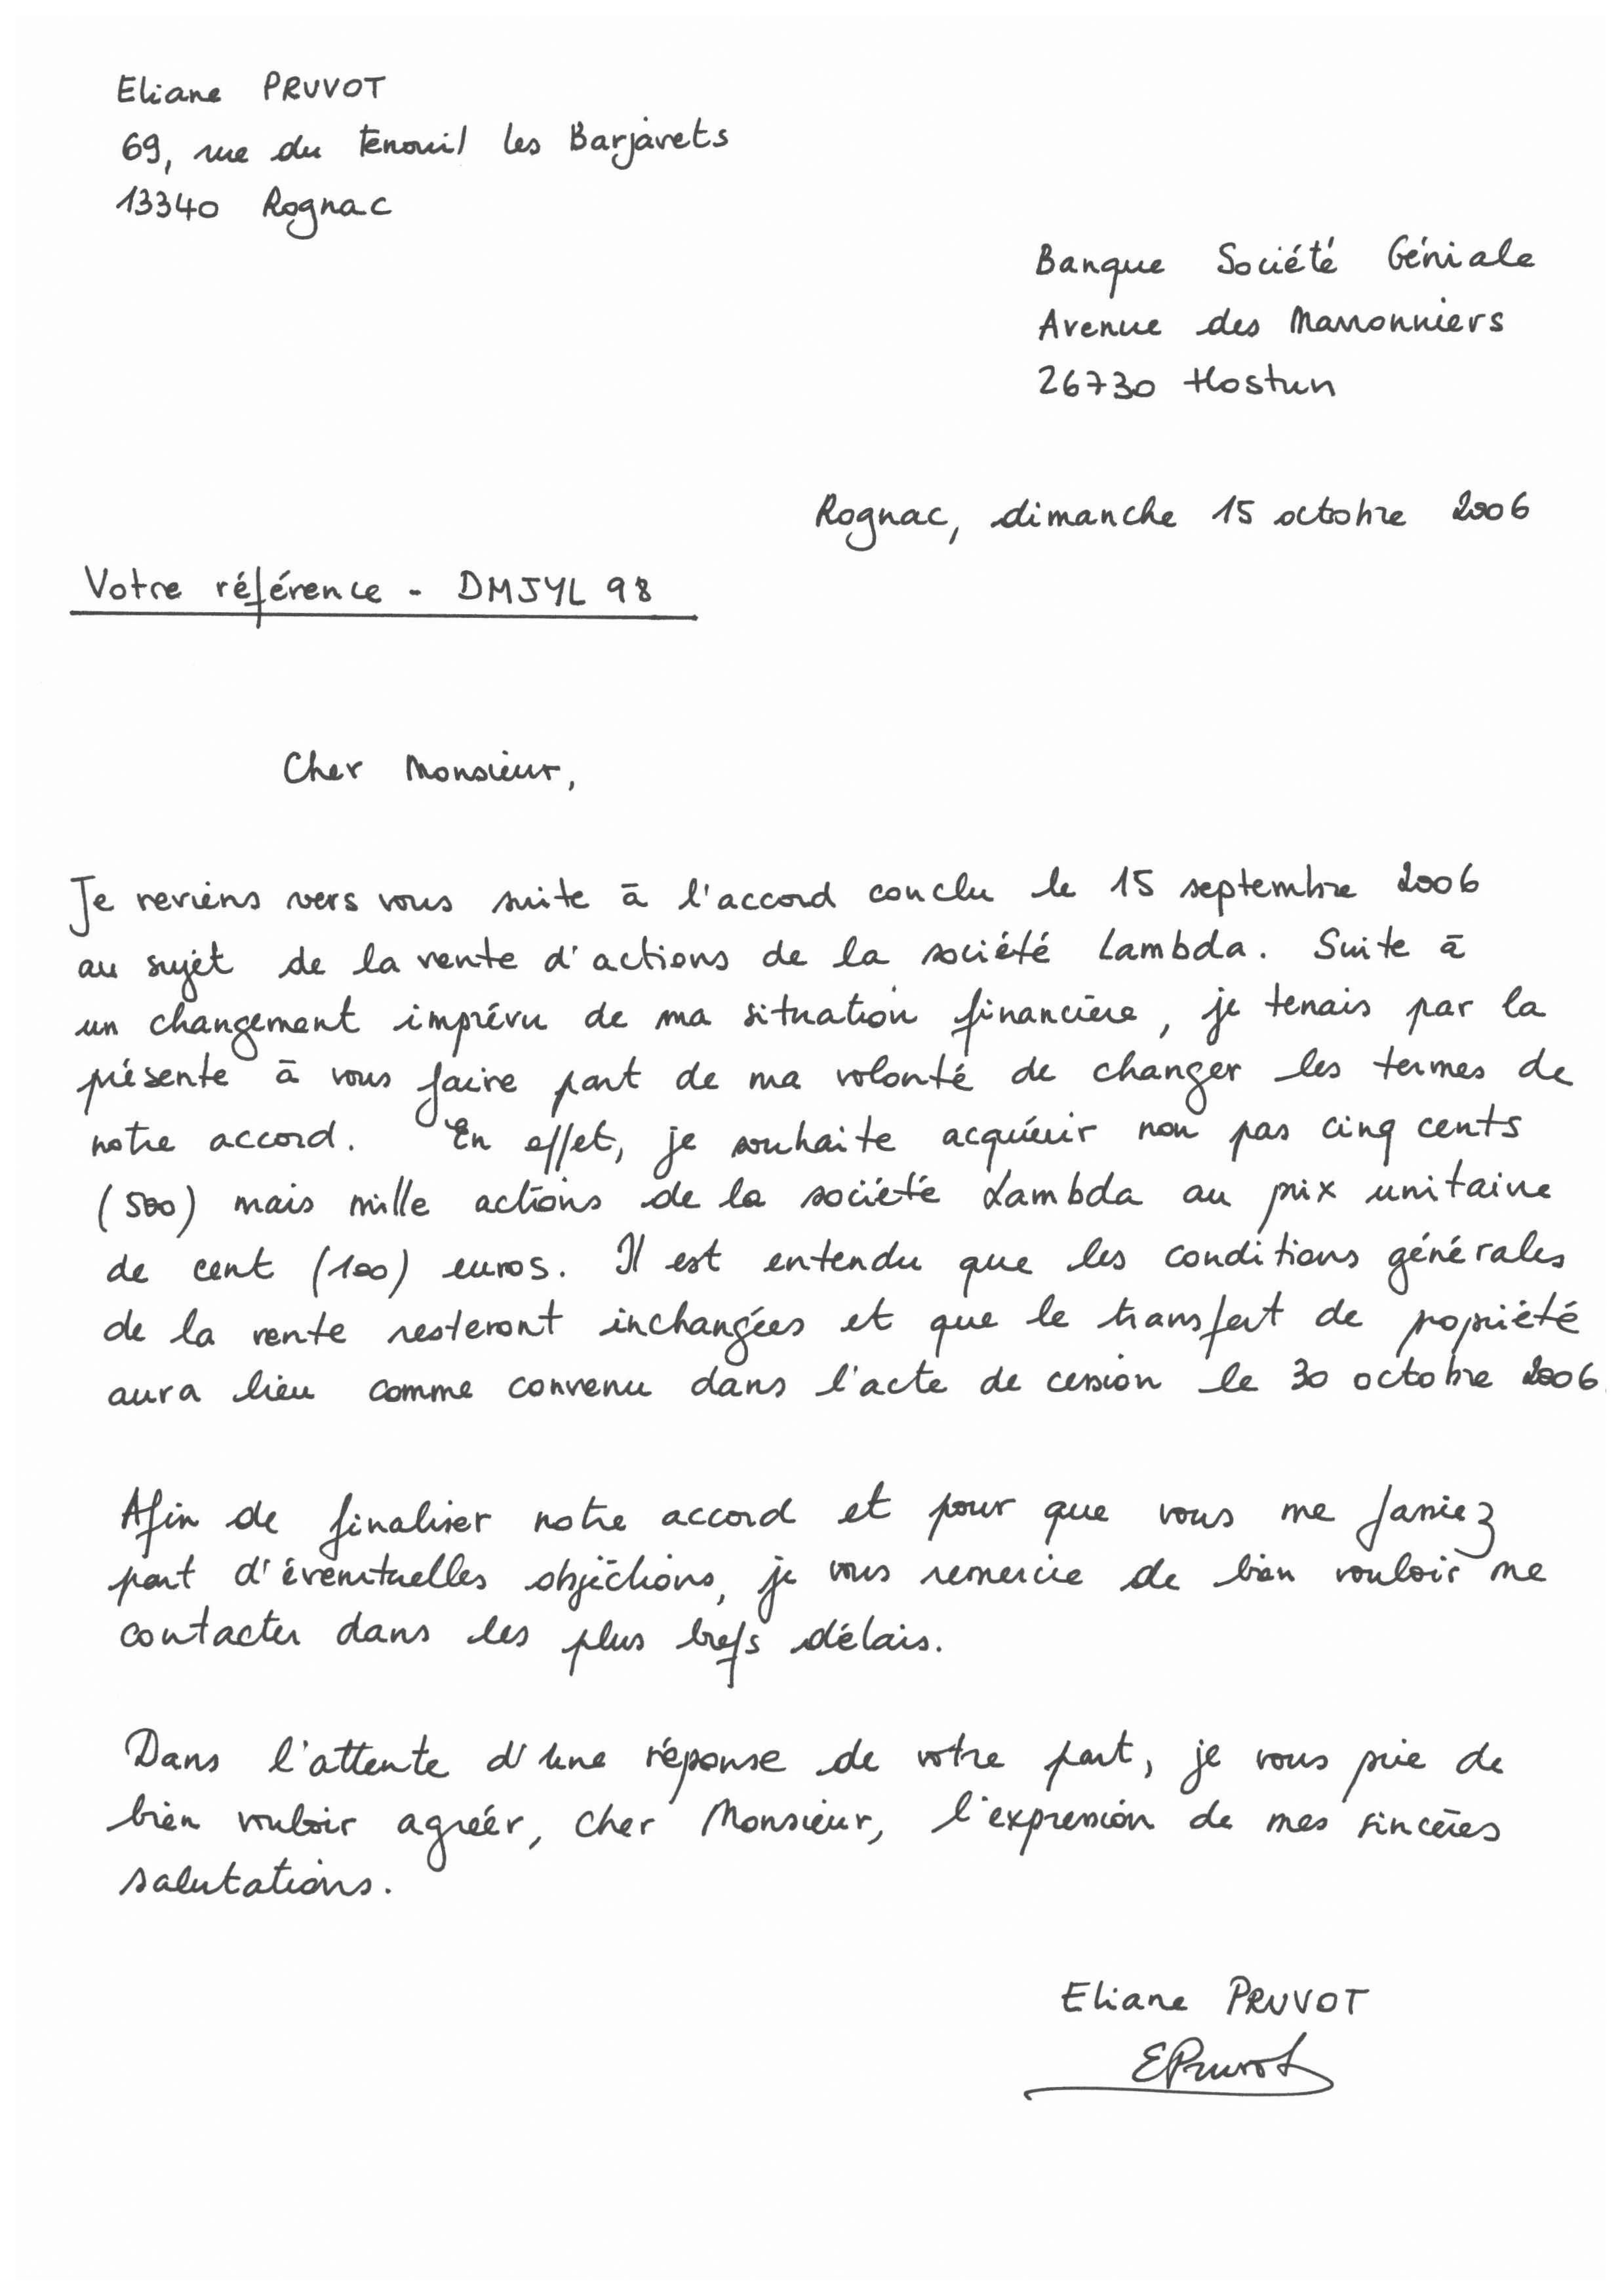 Eliane PRUVOT
69, rue du Fenouil les Barjavets
13340 Rognac
Banque Société Géniale
Avenue des Marronniers
26730 Hostun
Rognac, dimanche 15 octobre 2006
Votre référence - DMJYL 98
Cher Monsieur,
Je reviens vers vous suite à l'accord conclu le 15 septembre 2006
au sujet de la vente d'actions de la société Lambda. Suite à
un changement imprévu de ma situation financière, je tenais par la
présente à vous faire part de ma volonté de changer les termes de
notre accord. En effet, je souhaite acquérir non pas cinq cents
(500) mais mille actions de la société Lambda au prix unitaire
de cent (100) euros. Il est entendu que les conditions générales
de la vente resteront inchangées et que le transfert de propriété
aura lieu comme convenu dans l'acte de cession le 30 octobre 2006.
Afin de finaliser notre accord et pour que vous me fassiez
part d'éventuelles objections, je vous remercie de bien vouloir me
contacter dans les plus brefs délais.
Dans l'attente d'une réponse de votre part, je vous prie de
bien vouloir agréér, cher Monsieur, l'expression de mes sincères
salutations.
Eliane PRUVOT
EPruvot